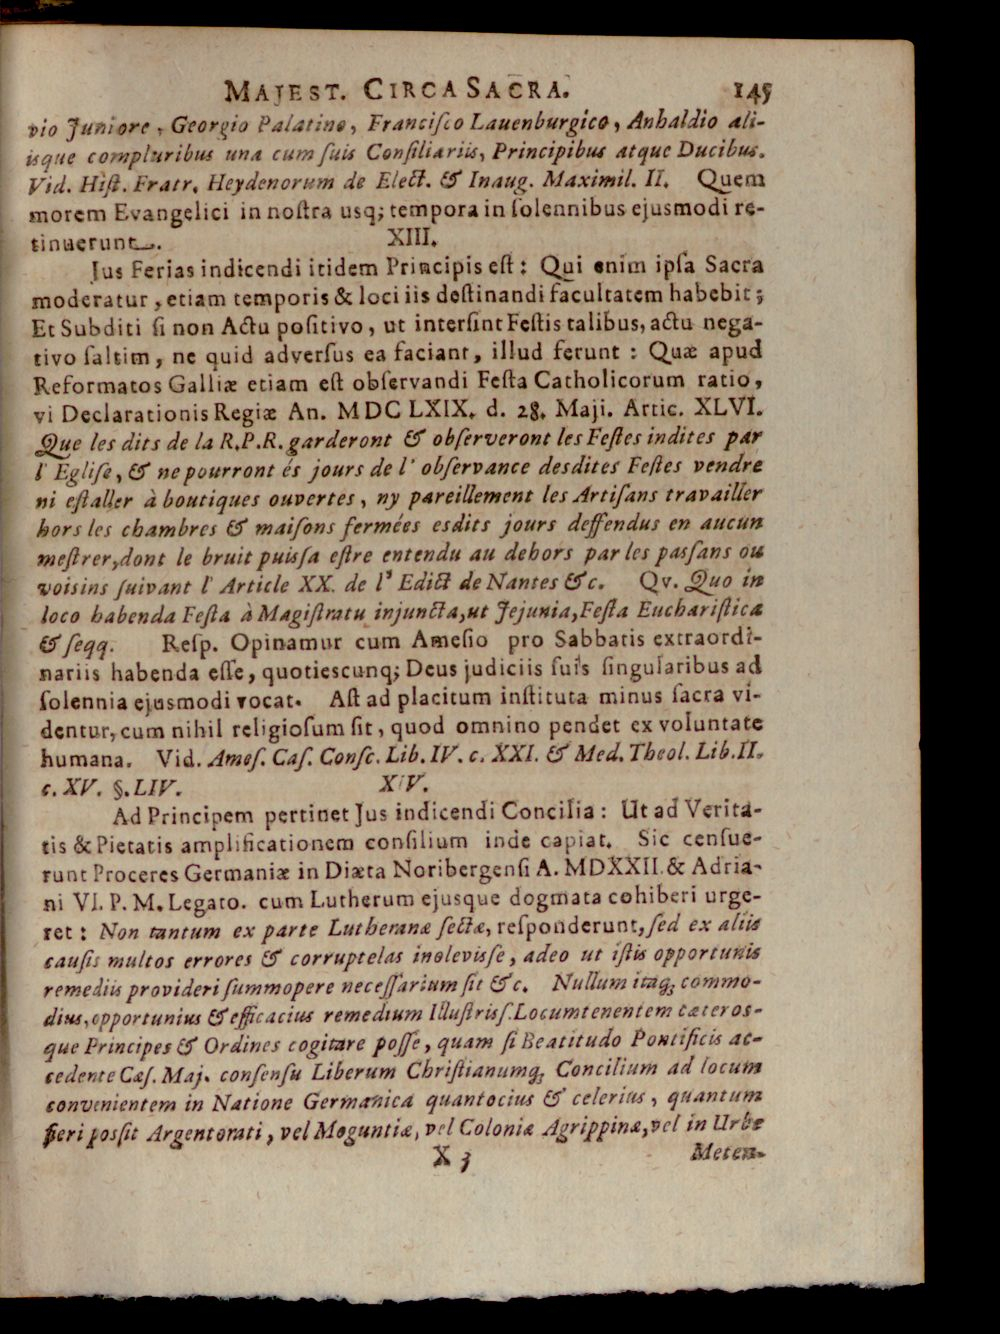 MAJEST. CIRCA SACRA. 145
vio Juniore, Georgio Palatino, Franciſco Lauenburgico, Anhaldio ali-
isque compluribus una cum ſuis Conſiliariis, Principibus atque Ducibus.
Vid. Hiſt. Fratr. Heydenorum de Elect. & Inaug. Maximil. II. Quem
morem Evangelici in noſtra usq; tempora in ſolennibus ejusmodi re-
tinuerunt.
XIII.
Jus Ferias indicendi itidem Principis eſt: Qui enim ipſa Sacra
moderatur, etiam temporis & loci iis deſtinandi facultatem habebit;
Et Subditi ſi non Actu poſitivo, ut interſint Feſtis talibus, actu nega-
tivo ſaltim, ne quid adverſus ea faciant, illud ferunt: Quæ apud
Reformatos Galliæ etiam eſt obſervandi Feſta Catholicorum ratio,
vi Declarationis Regiæ An. MDC LXIX. d. 28. Maji. Artic. XLVI.
Que les dits de la R.P.R. garderont & obſerveront les Feſtes indites par
l' Egliſe, & ne pourront és jours de l' obſervance desdites Feſtes vendre
ni eſtaller à boutiques ouvertes, ny pareillement les Artiſans travailler
hors les chambres & maiſons fermées esdits jours deffendus en aucun
meſtrer, dont le bruit puiſsa eſtre entendu au dehors par les paſsans ou
voisins ſuivant l' Article XX. de l' Edict de Nantes &c. Qv. Quo in
loco habenda Feſta à Magiſtratu injuncta, ut Jejunia, Feſta Euchariſtica
& ſeqq. Reſp. Opinamur cum Ameſio pro Sabbatis extraordi-
nariis habenda eſſe, quotiescunq; Deus judiciis ſuis ſingularibus ad
ſolennia ejusmodi vocat. Aſt ad placitum inſtituta minus ſacra vi-
dentur, cum nihil religioſum ſit, quod omnino pendet ex voluntate
humana. Vid. Ameſ. Caſ. Conſc. Lib. IV. c. XXI. & Med. Theol. Lib. II.
c. XV. §. LIV.
XIV.
Ad Principem pertinet Jus indicendi Concilia: Ut ad Verita-
tis & Pietatis amplificationem conſilium inde capiat. Sic cenſue-
runt Proceres Germaniæ in Diæta Noribergenſi A. MDXXII. & Adria-
ni VI. P. M. Legato. cum Lutherum ejusque dogmata cohiberi urge-
ret: Non tantum ex parte Lutheranæ ſectæ, reſponderunt, ſed ex aliis
cauſis multos errores & corruptelas inoleviſſe, adeo ut iſtis opportunis
remediis provideri ſummopere neceſſarium ſit &c. Nullum itaq; commo-
dius, opportunius & efficacius remedium Illuſtriſſ. Locumtenentem cæteros-
que Principes & Ordines cogitare poſſe, quam ſi Beatitudo Pontificis ac-
cedente Cæſ. Maj. conſenſu Liberum Chriſtianumq; Concilium ad locum
convenientem in Natione Germanica quantocius & celerius, quantum
fieri poſsit Argentorati, vel Moguntiæ, vel Coloniæ Agrippinæ, vel in Urbe
X 3 Meten-